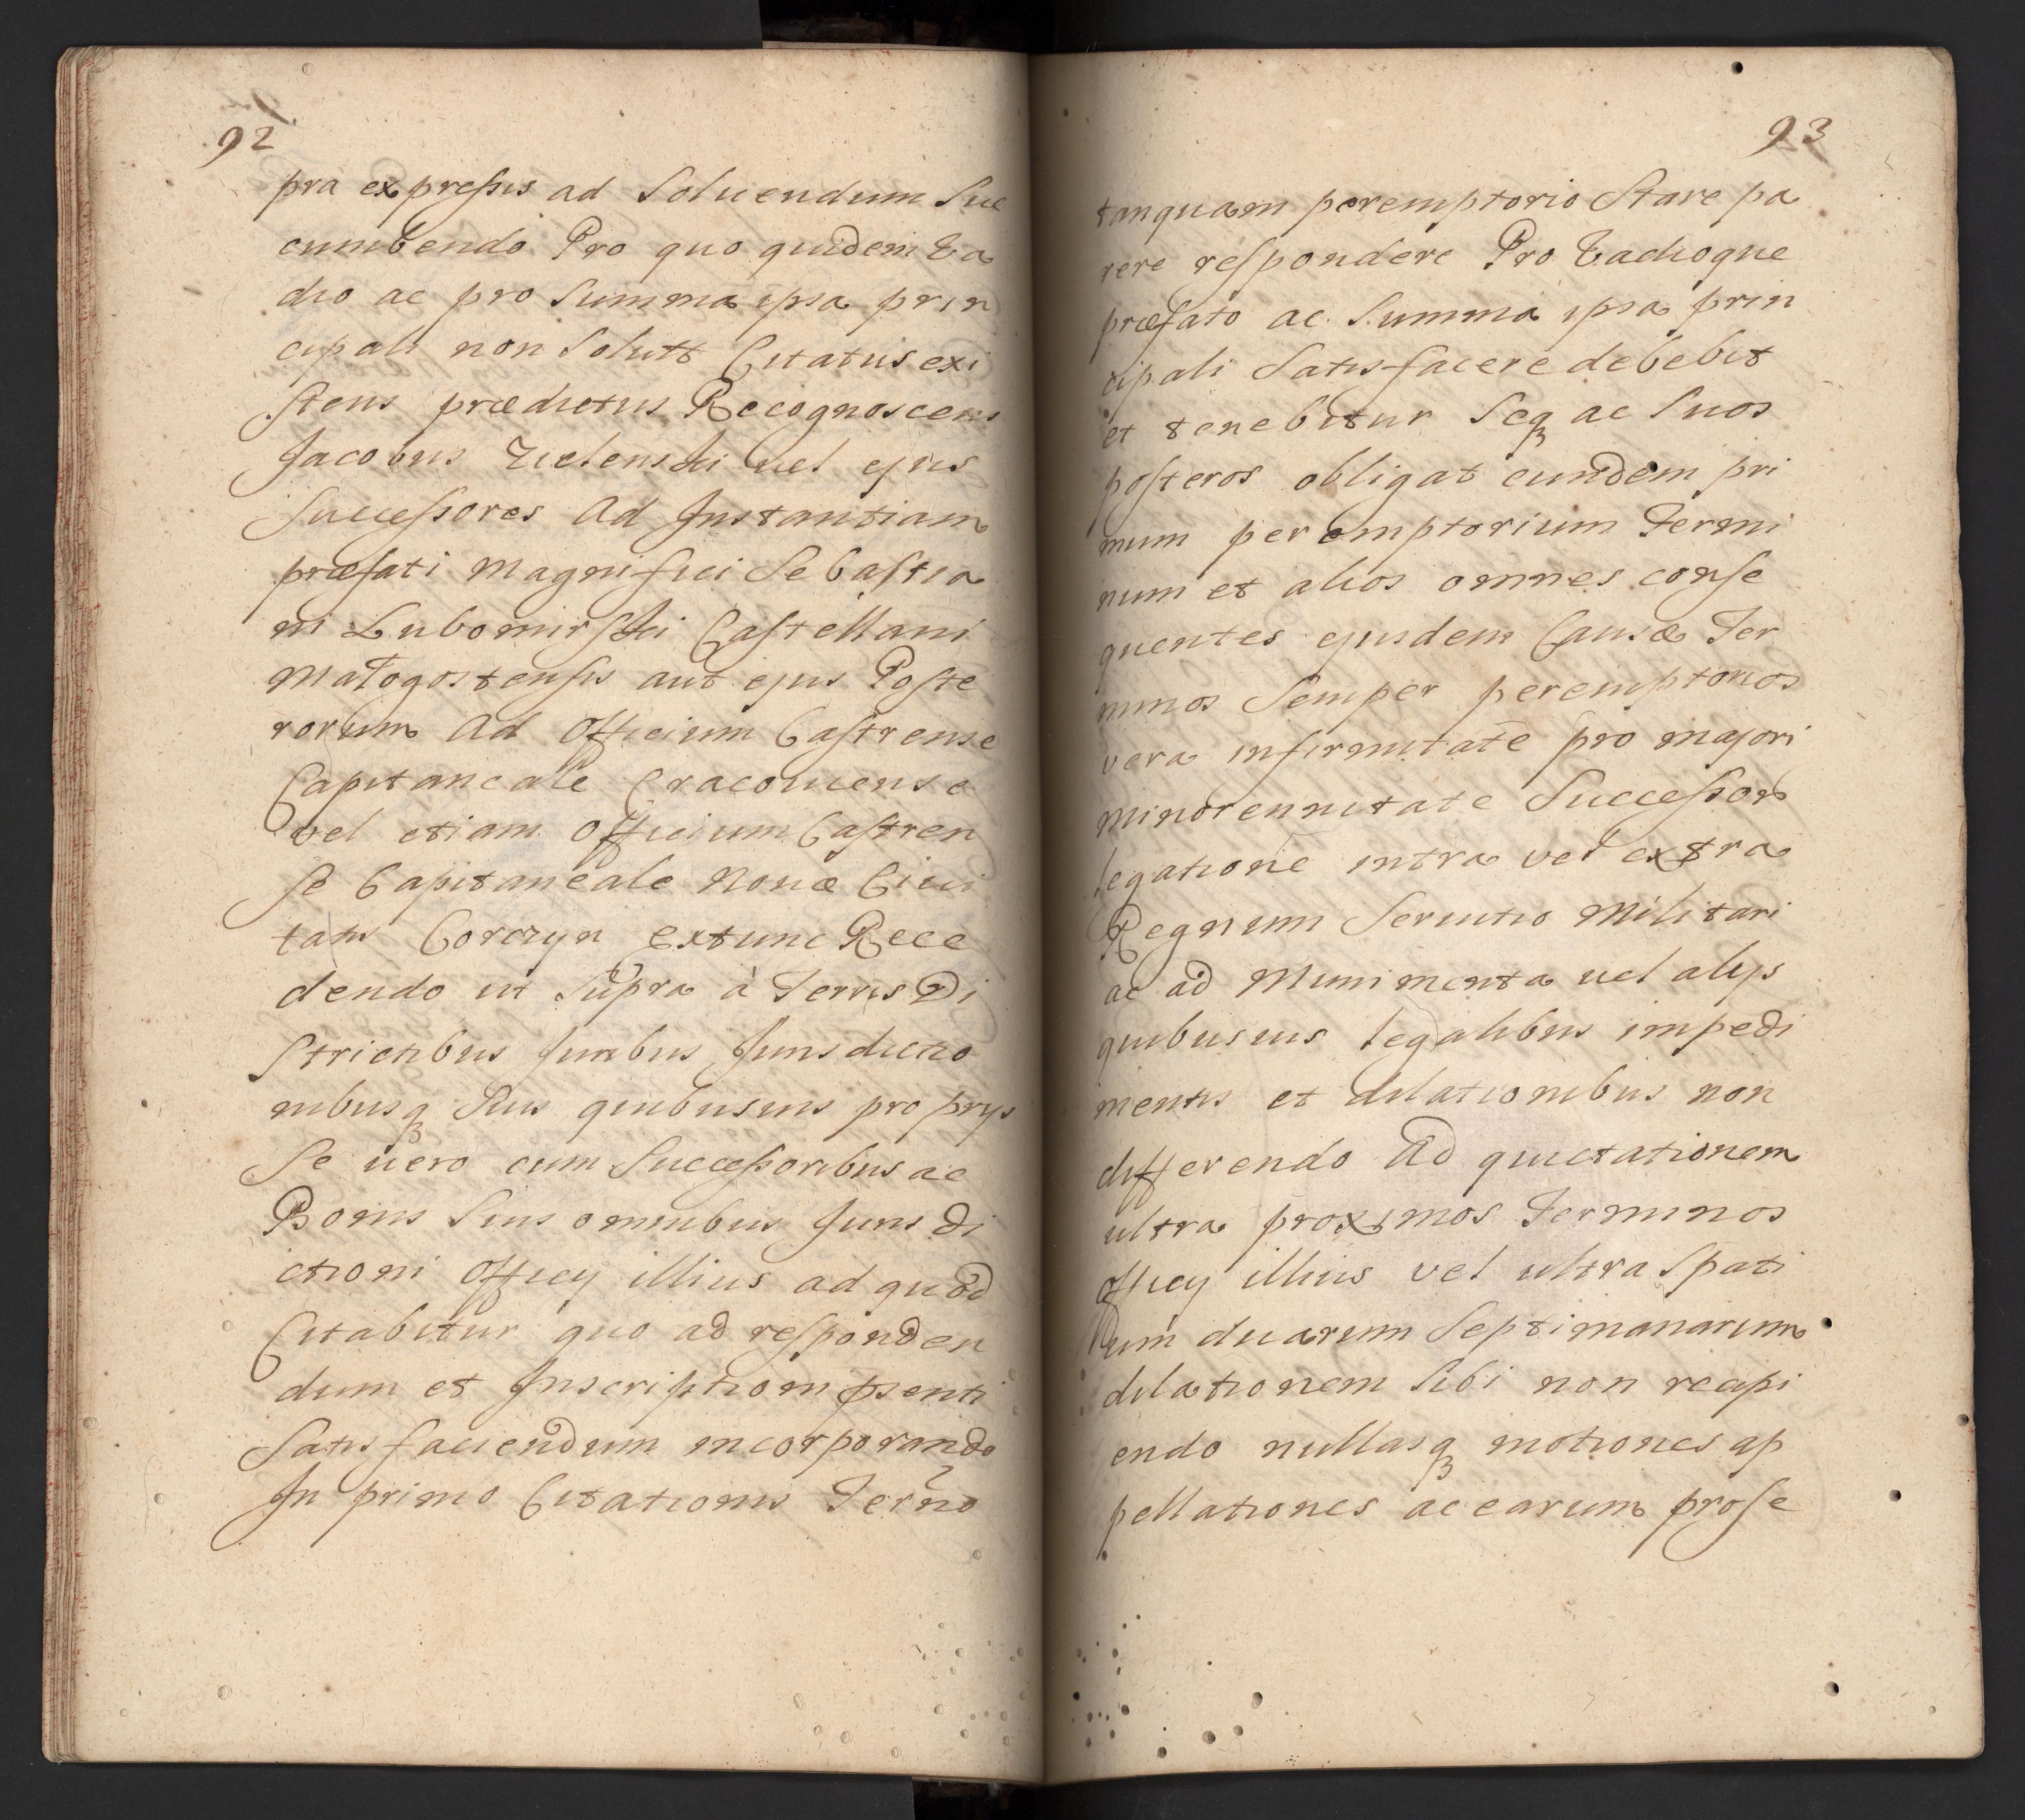 92
pra expressis ad Soluendum Suc
cumbendo Pro quo quidem Va
dio ac pro Summa ipsa prin
cipali non Solutt Citatus exi
stens prædictus Recognoscens
Jacobus Zielenski uel ejus
Successores Ad Instantiam
præfati Magnifici Sebastia
ni Lubomirski Castellani
Małogostensis aut ejus Poste
rorum Ad Officium Castrense
Capitaneale Cracouiense
vel etiam Officium Castren
se Capitaneale Nouæ Ciui
tatis Corczyn extunc Rece
dendo ut Supra à Terris Di
Strictibus Juribus Jurisdictio
nibusq Suis quibusuis proprys
Se uero cum Successoribus ac
Bonis Suis omnibus Juris di
ctioni Officy illius ad quod
Citabitur quo ad responden
dum et Inscriptioni psenti
Satisfaciendum incorporando
In primo Citationis Terño
93
tanquam peremptorio Stare pa
rere respondere Pro Vadioque
præfato ac Summa ipsa prin
cipali Satisfacere debebit
et tenebitur Seq ac Suos
posteros obligat eundem pri
mum peremptorium Termi
num et alios omnes conse
quentes ejusdem Causæ Ter
minos Semper peremptorios
vera infirmitate pro majori
minorennitate Successor
legatione intra vel extra
Regnum Seruitio Militari
ac ad Munimenta uel alys
quibusuis legalibus impedi
mentis et dilationibus non
differendo Ad quietationem
ultra proximos Terminos
Officy illius vel ultra Spati
um duarum Septimanarum
dilationem Sibi non recipi
endo nullasq motiones ap
pellationes ac earum prose